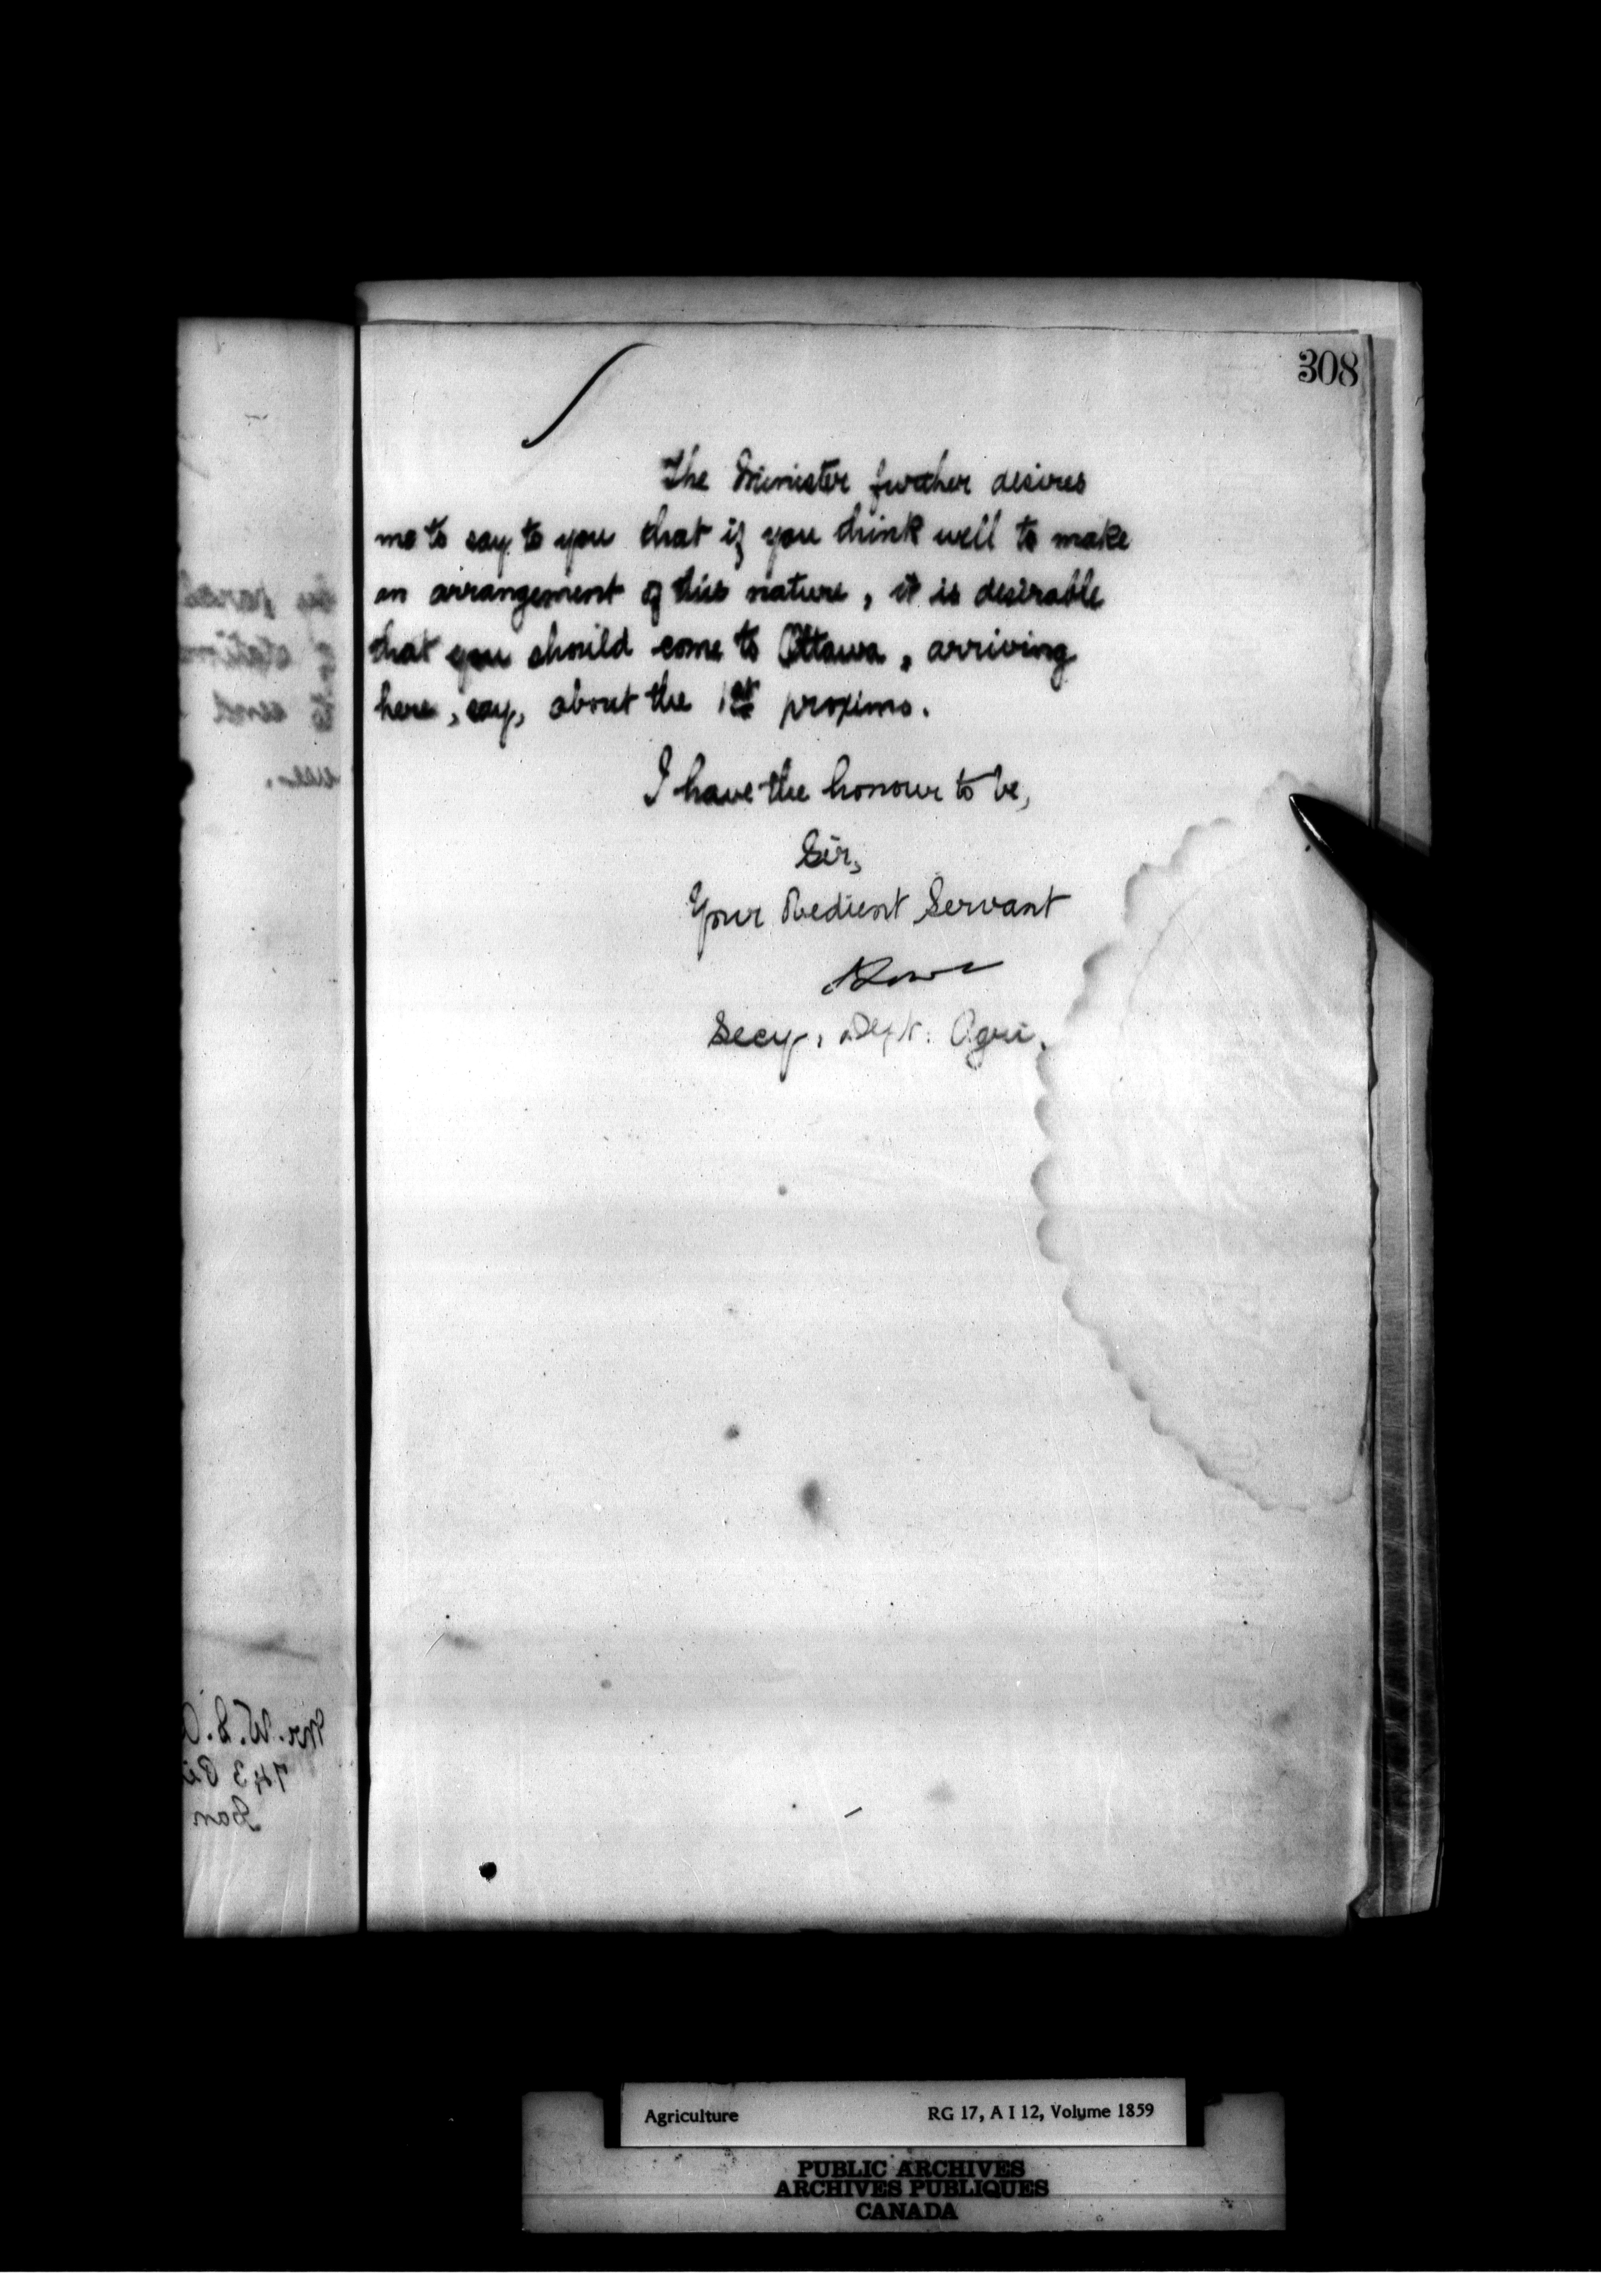 308
The Minister further desires
me to say to you that if you think well to make
an arrangement of this nature, it is desirable
that you should come to Ottawa, arriving
here, say, about the 1st proximo.
I have the honour to be,
Sir,
Your Obedient Servant
Secy, Dept. Agri.
Mr. W. S.
743
Agriculture RG 17, A I 12, Volume 1859
PUBLIC ARCHIVES
ARCHIVES PUBLIQUES
CANADA